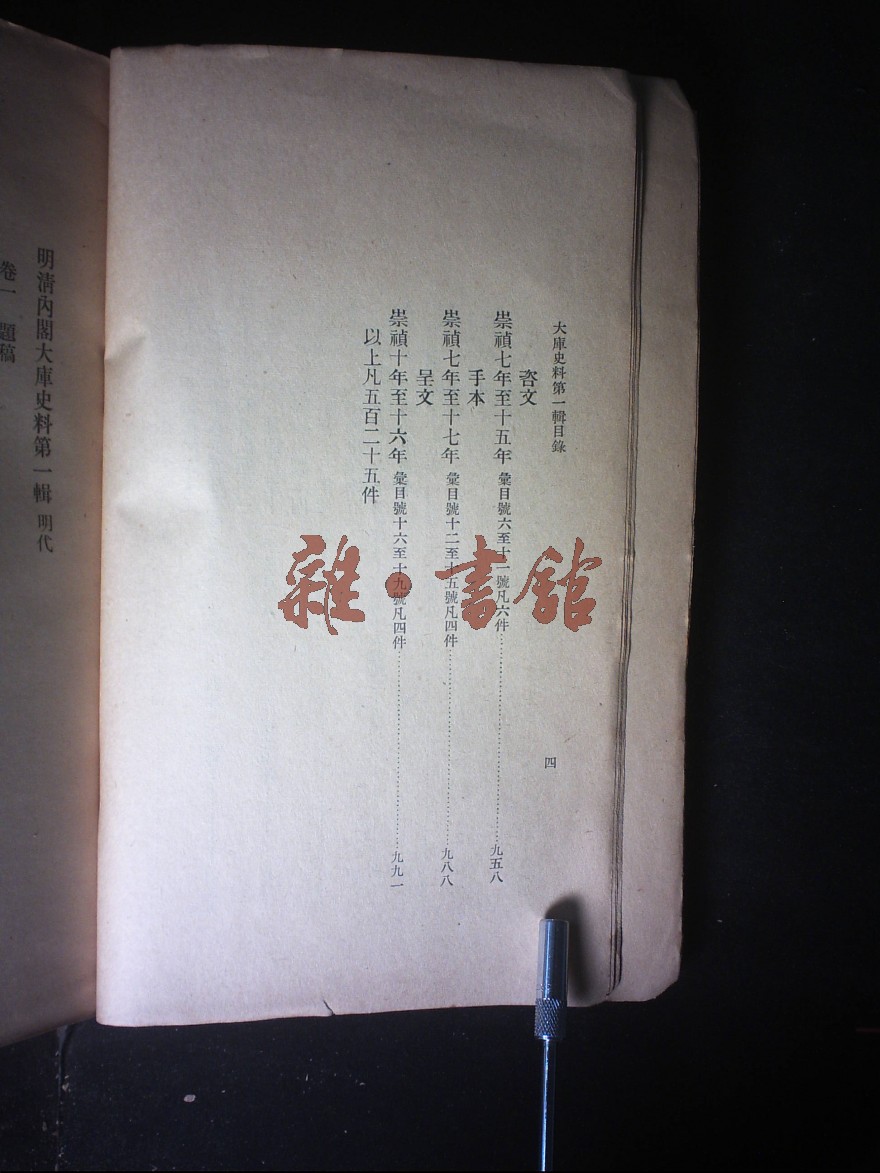 大庫史料第一輯目錄
四
咨文
崇禎七年至十五年 彙目號六至十一號凡六件……九五八
手本
崇禎七年至十七年 彙目號十二至十五號凡四件……九八八
呈文
崇禎十年至十六年 彙目號十六至十九號凡四件……九九一
以上凡五百二十五件
明清內閣大庫史料第一輯 明代
卷一 題稿
雜·書館